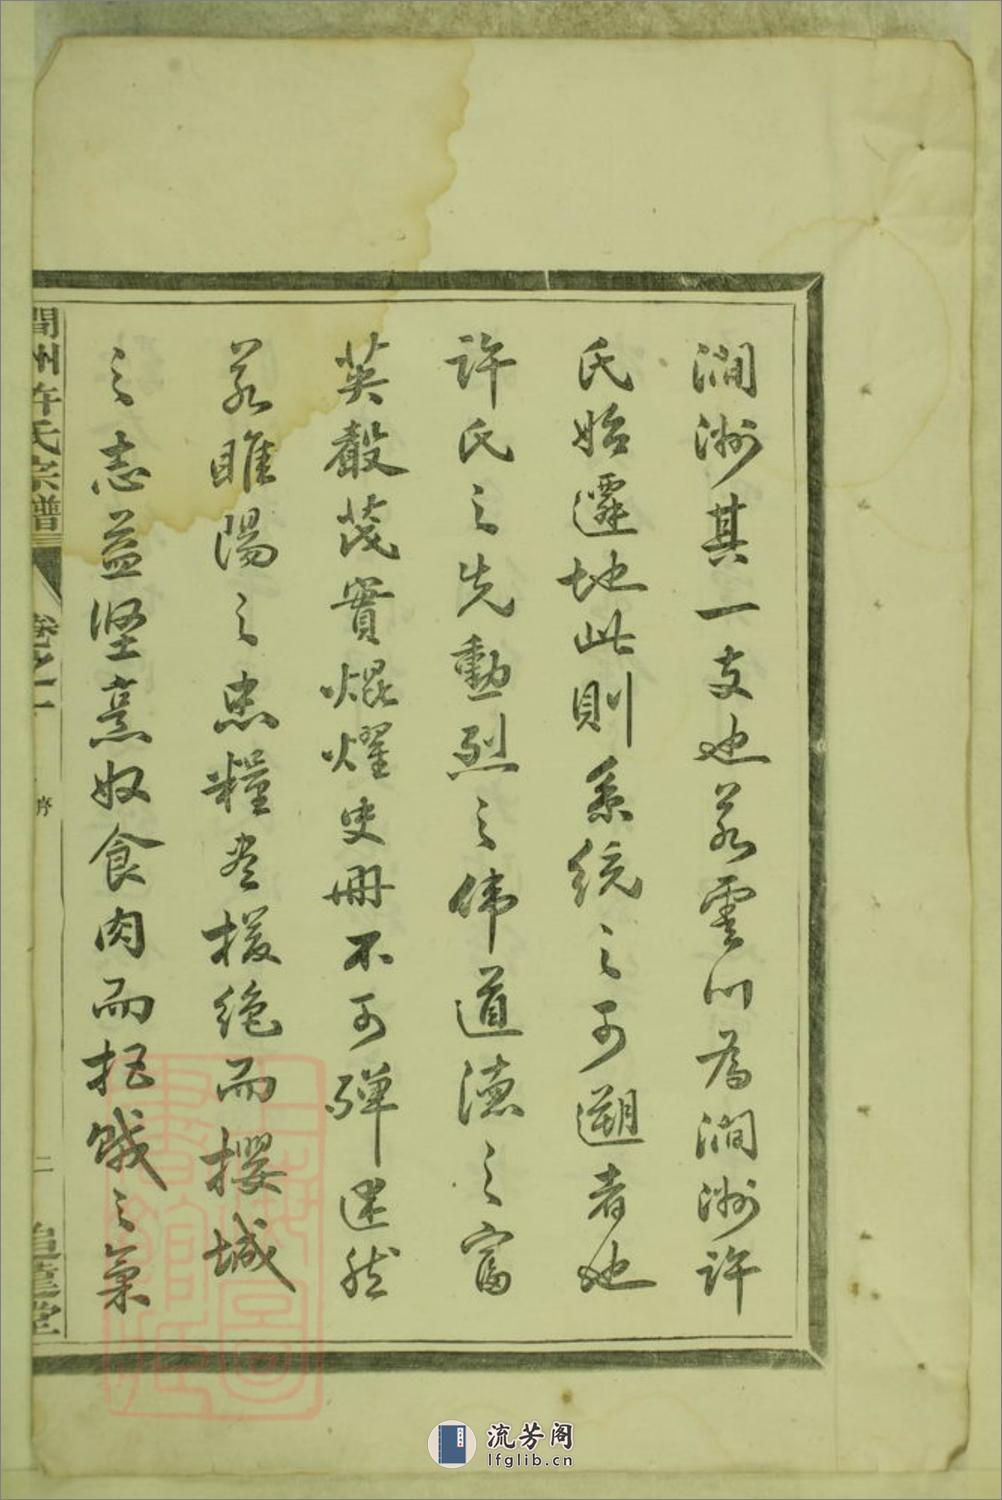 澗洲其一支也若雲川為澗洲許
氏始遷地此則系統之可遡者也
許氏之先勳烈之偉道德之富
英聲茂實焜燿史冊不可殫述然
若睢陽之忠糧盡援絕而攖城
之志益堅烹奴食肉而拒餓之氣
澗州許氏宗譜
卷之一
序
二
追遠堂
流芳阁
lfglib.cn